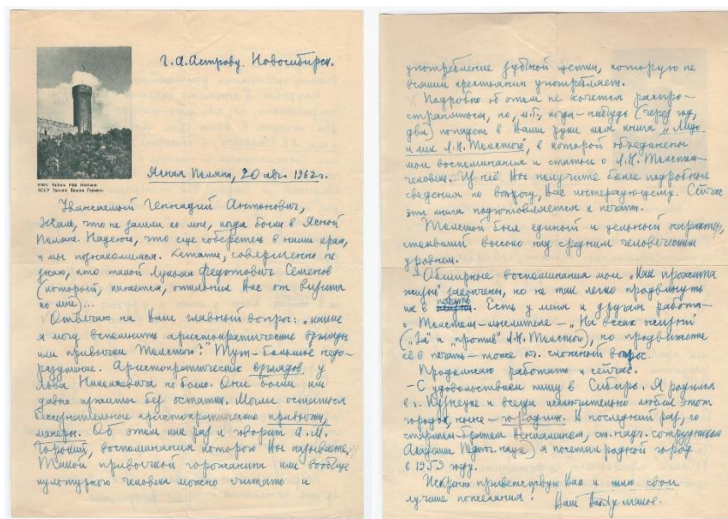 Г. А. Астрову. Новосибирск.
Ясная Поляна, 20 авг. 1962 г.
Уважаемый Геннадий Антонович,
Жаль, что не зашли ко мне, когда были в Ясной
Поляне. Надеюсь, что еще соберетесь в наши края,
и мы познакомимся. Кстати, совершенно не
знаю, кто такой Лукьян Федотович Семенов
(который, кажется, отклонил Вас от визита
ко мне)...
Отвечаю на Ваш главный вопрос: "какие
я могу вспомнить аристократические взгляды
или привычки Толстого?" Тут – большое недо-
разумение. Аристократических взглядов у
Льва Николаевича не было. Они были им
давно изжиты без остатка. Могли остаться
бессознательные аристократические привычки,
манеры. Об этом как раз и говорит А. М.
Горький, воспоминания которого Вы называете.
Такой привычкой горожанина или вообще
культурного человека можно считать и
употребление зубной щетки, которую не
всякий крестьянин употребляет.
Подробно об этом не хочется распро-
страняться, но, м. б., когда-нибудь (через год,
два) попадет в Ваши руки моя книга "Лицо
и лик Л. Н. Толстого", в которой объединены
мои воспоминания и статьи о Л. Н. Толстом-
человеке. Из неё Вы получите более подробные
сведения по вопросу, Вас интересующему. Сейчас
эта книга подготовляется к печати.
Толстой был единый и цельный характер,
стоявший высоко над средним человеческим
уровнем.
Обширные воспоминания мои "Как прожита
жизнь" закончены, но не так легко продвинуть
их в печать. Есть у меня и другая работа –
о Толстом-мыслителе – "На весах жизни"
("За" и "против" Л. Н. Толстого), но продвижение
её в печать – тоже сложный вопрос.
Продолжаю работать и сейчас.
– С удовольствием пишу в Сибирь. Я родился
в г. Кузнецке и всегда исключительно любил этот
городок, ныне – город. В последний раз, со
старшим братом Вениамином, ст. науч. сотрудником
Академии Педагог. наук, я посетил родной город
в 1959 году.
Искренно приветствую Вас и шлю свои
лучшие пожелания!
Ваш Вал. Булгаков.